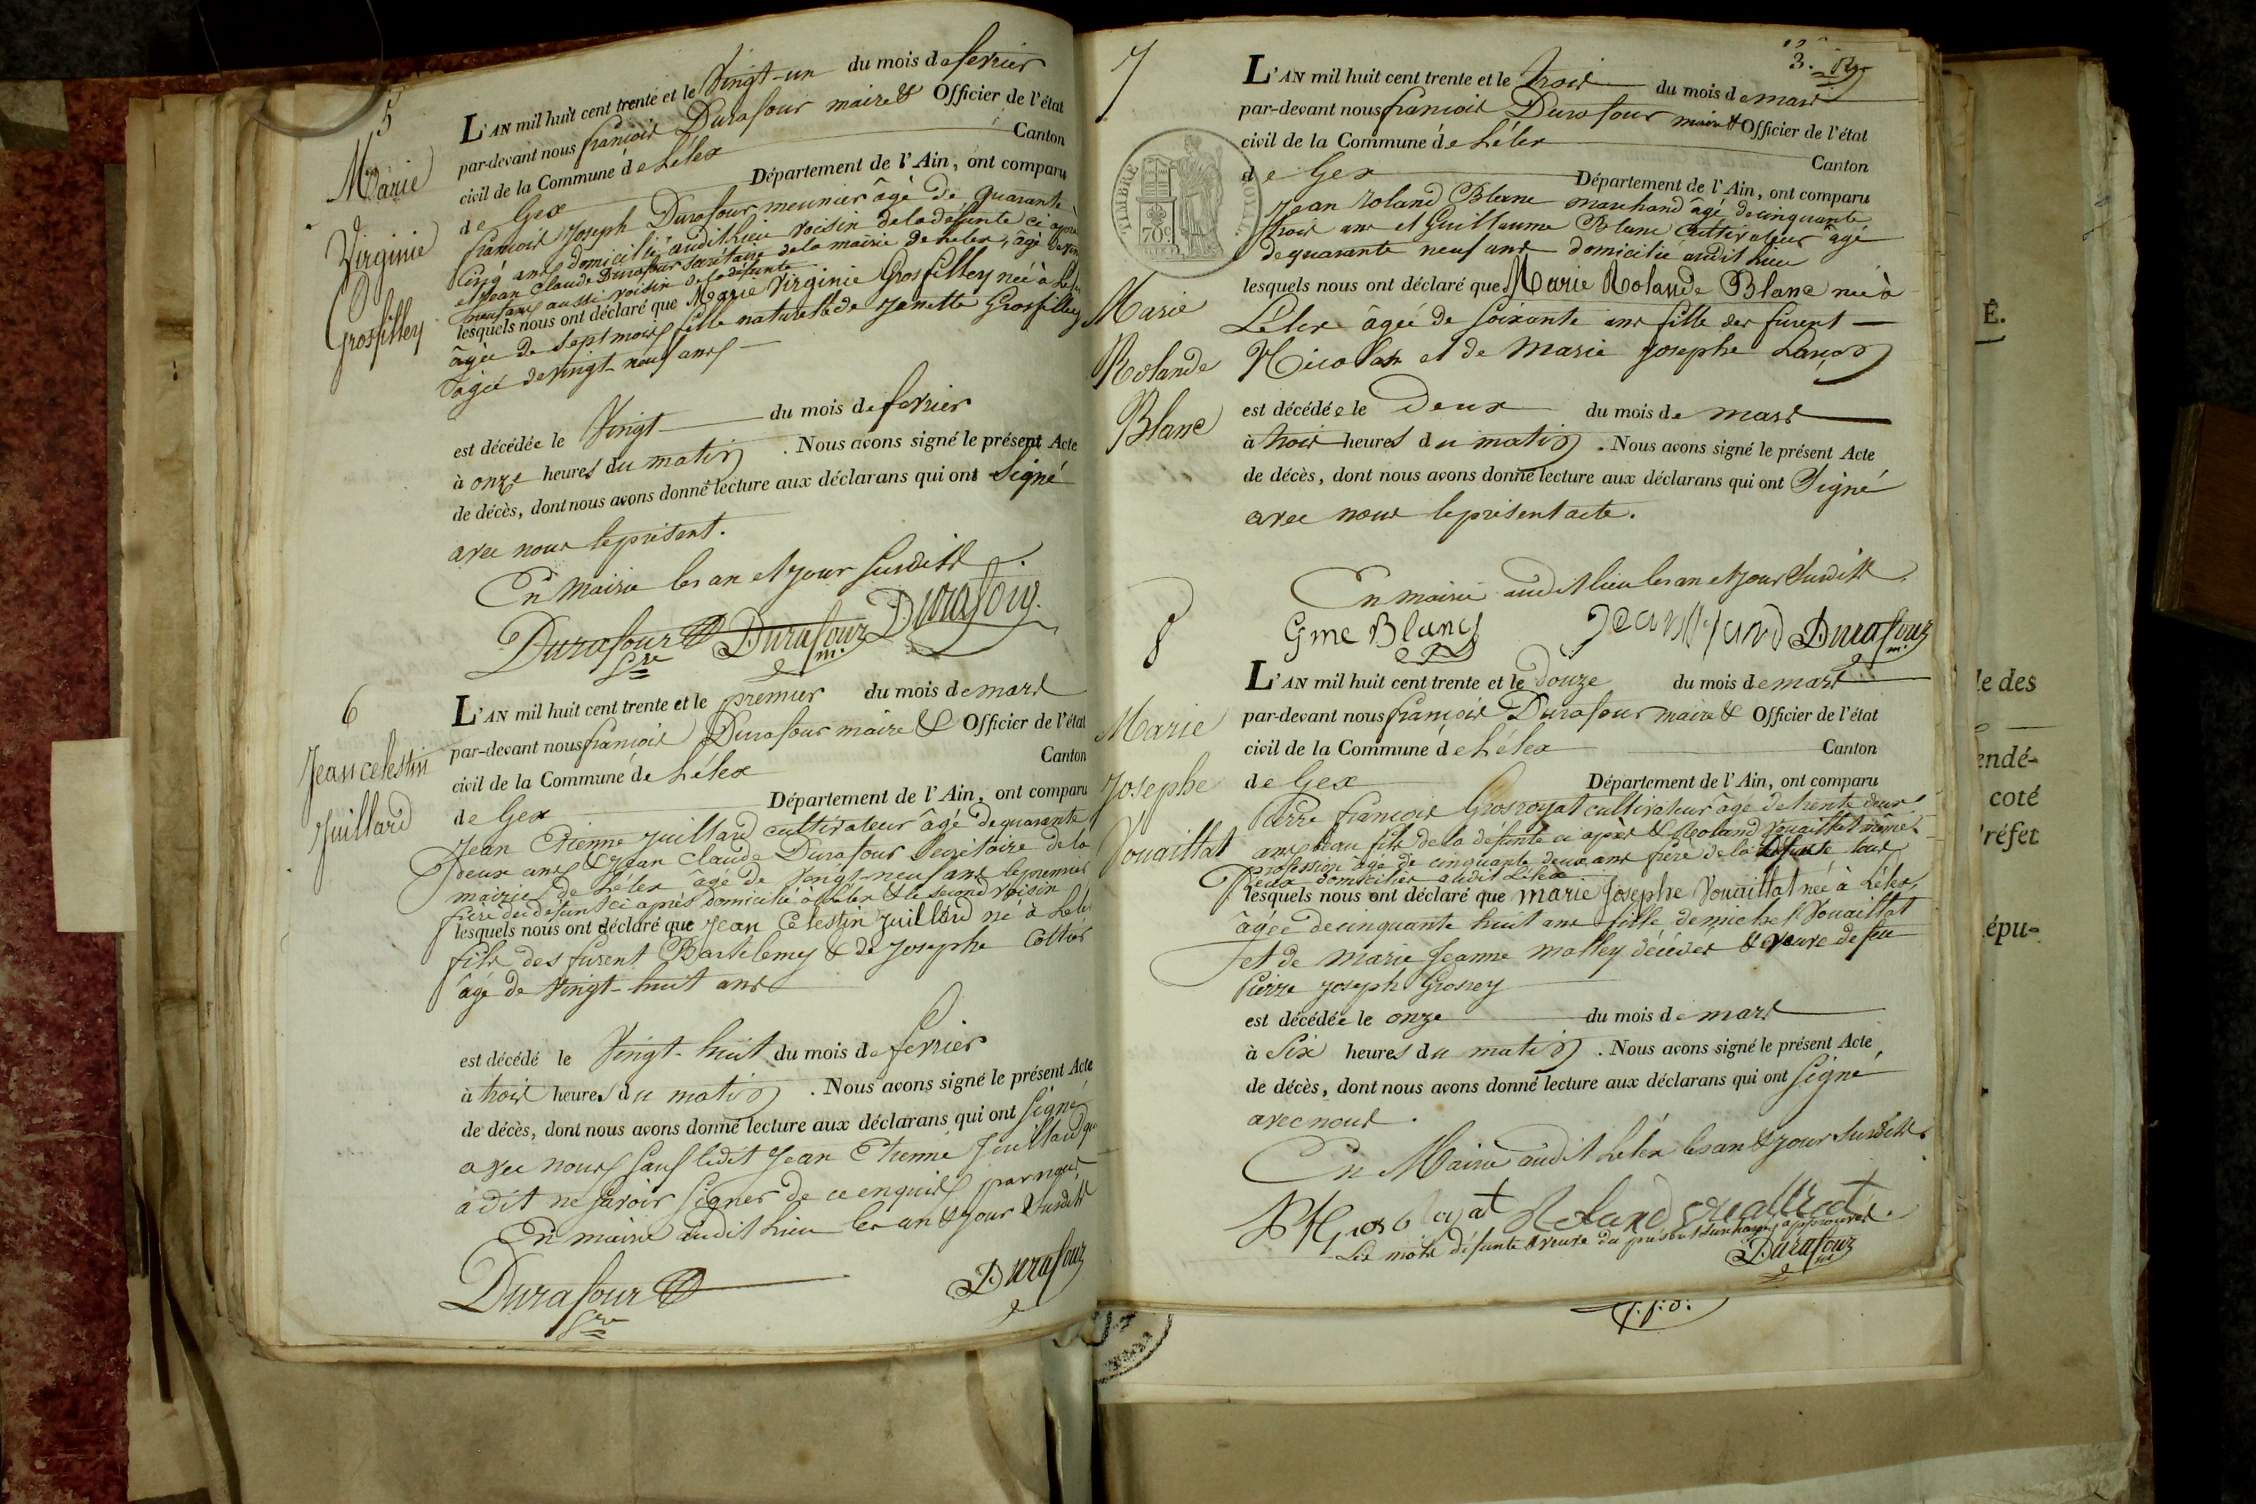 5
Marie
Virginie
Grosfilley
L'AN mil huit cent trente et le Vingt-un du mois de fevrier
par-devant nous françois Durafour maire & Officier de l'état
civil de la Commune de Lélex Canton
de Gex Département de l'Ain, ont comparu
françois Joseph Durafour meunier âgé de quarante
cinq ans domicilié audit lieu voisin de la defunte ci après
et Jean Claude Durafour Secrétaire de la mairie de Lelex, âgé de vingt
neuf ans aussi voisin de la défunte
lesquels nous ont déclaré que Marie Virginie Grosfilley née à Lelex
âgée de Sept mois fille naturelle de Janette Grosfilley
âgée de vingt-neuf ans
est décédée le Vingt du mois de fevrier
à onze heures du matin . Nous avons signé le présent Acte
de décès, dont nous avons donné lecture aux déclarans qui ont Signé
avec nous le présent.
En Mairie les an et jour susdits
Durafour Sre Durafour m. Durafour
6
Jean celestin
Juillard
L'AN mil huit cent trente et le premier du mois de mars
par-devant nous françois Durafour maire & Officier de l'état
civil de la Commune de Lélex Canton
de Gex Département de l'Ain, ont comparu
Jean Etienne Juillard cultivateur âgé de quarante
deux ans & Jean Claude Durafour Secrétaire de la
mairie de Lélex âgé de Vingt-neuf ans le premier
frère du défunt ci après domicilié à Lélex & le second voisin
lesquels nous ont déclaré que Jean Célestin Juillard né à Lelex
fils des furent Barthelemy & de Josephe Cottier
âgé de Vingt-huit ans
est décédé le Vingt-huit du mois de fevrier
à trois heures du matin . Nous avons signé le présent Acte
de décès, dont nous avons donné lecture aux déclarans qui ont signé
avec nous sauf ledit Jean Etienne Juillard qui
a dit ne savoir signer de ce enquis par nous
En mairie audit lieu les an & jour Susdits
Durafour Sre Durafour
7
3.
TIMBRE ROYAL
70c
Marie
Rolande
Blanc
L'AN mil huit cent trente et le trois du mois de mars
par-devant nous françois Durafour maire & Officier de l'état
civil de la Commune de Lélex Canton
de Gex Département de l'Ain, ont comparu
Jean Roland Blanc marchand âgé de cinquante
trois ans et Guillaume Blanc Cultivateur âgé
de quarante neuf ans domicilié audit lieu
lesquels nous ont déclaré que Marie Rolande Blanc née à
Lelex âgée de Soixante ans fille des furent
Nicolas et de Marie Josephe Lançon
est décédée le Deux du mois de mars
à trois heures du matin . Nous avons signé le présent Acte
de décès, dont nous avons donné lecture aux déclarans qui ont Signé
avec nous le présent acte.
En mairie audit lieu les an et jour Susdits.
Gme Blanc Durafour m.
8
Marie
Josephe
Vouaillat
L'AN mil huit cent trente et le douze du mois de mars
par-devant nous françois Durafour maire & Officier de l'état
civil de la Commune de Lélex Canton
de Gex Département de l'Ain, ont comparu
Pierre françois Grosroyat cultivateur âgé de trente deux
ans beau fils de la défunte ci après & Roland Vouaillat même
profession âgé de cinquante deux ans frère de la défunte tous
deux domiciliés audit Lélex
lesquels nous ont déclaré que Marie Josephe Vouaillat née à Lélex,
âgée de cinquante huit ans fille de michel Vouaillat
et de Marie Jeanne Mathey décédés & veuve de feu
Pierre Joseph Grosrey
est décédée le onze du mois de mars
à Six heures du matin . Nous avons signé le présent Acte
de décès, dont nous avons donné lecture aux déclarans qui ont signé
avec nous.
En Mairie audit Lélex les an & jour susdits
Roland
Les mots défunte & veuve du présent surchargés approuvés.
Durafour m
É.
le des
endé-
coté
réfet
épu-